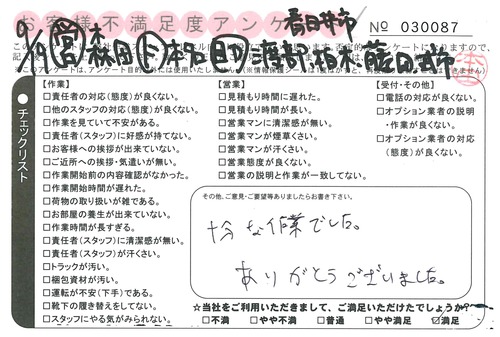 お客様不満足度アンケ
春日井市
№ 030087
9/9 営 森岡 ド 本名 渡部、柏木 藤田
【作業】
□責任者の対応(態度)が良くない。
□他のスタッフの対応(態度)が良くない。
□作業を見ていて不安がある。
□責任者(スタッフ)に好感が持てない。
□お客様への挨拶が出来ていない。
□ご近所への挨拶・気遣いが無い。
□作業開始前の内容確認がなかった。
□作業開始時間が遅れた。
□荷物の取り扱いが雑である。
□お部屋の養生が出来ていない。
□作業時間が長すぎる。
□責任者(スタッフ)に清潔感が無い。
□責任者(スタッフ)が汗くさい。
□トラックが汚い。
□梱包資材が汚い。
□運転が不安(下手)である。
□靴下の履き替えをしてない。
□スタッフにやる気がみられない。
【営業】
□見積もり時間に遅れた。
□見積もり時間が長い。
□営業マンに清潔感が無い。
□営業マンが煙草くさい。
□営業マンが汗くさい。
□営業態度が良くない。
□営業の説明と作業が一致してない。
【受付・その他】
□電話の対応が良くない。
□オプション業者の説明
・作業が良くない。
□オプション業者の対応
(態度)が良くない。
チェックリスト
その他、ご意見・ご要望等ありましたらお書き下さい。
十分な作業でした。
ありがとうございました。
☆当社をご利用いただきまして、ご満足いただけたでしょうか?
□不満 □やや不満 □普通 □やや満足 ☑満足